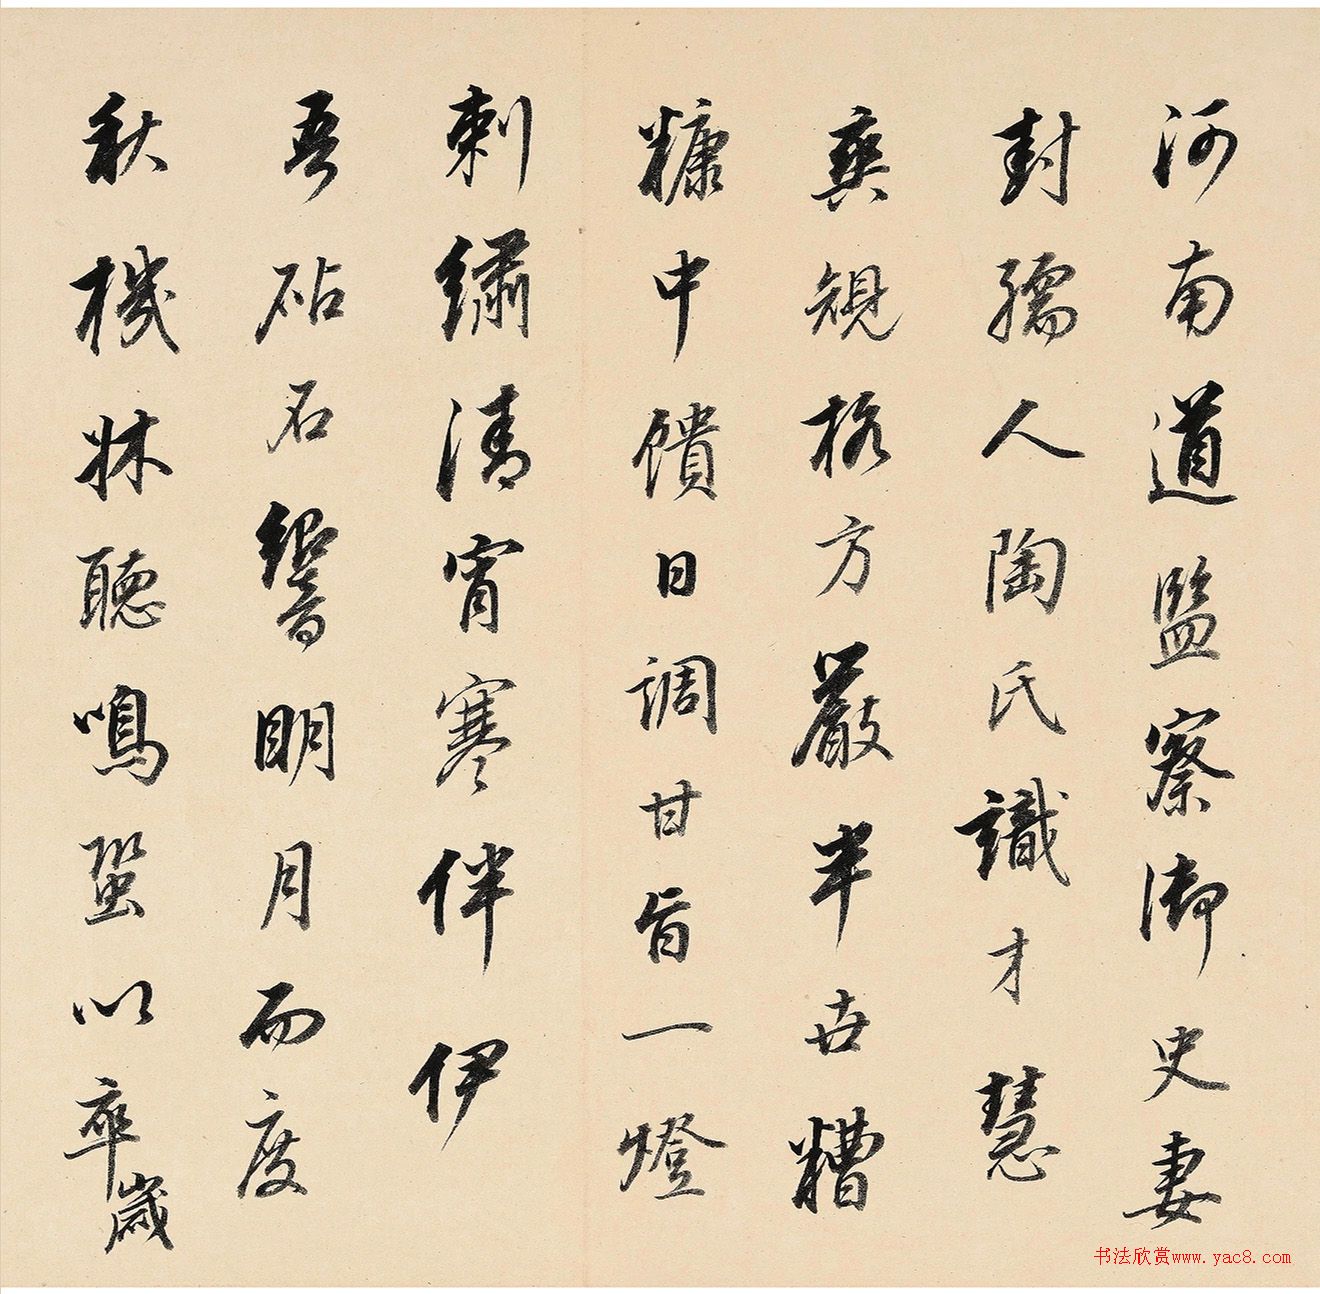 河南道監察御史妻
封孺人陶氏識才慧
爽規格方嚴半世糟
糠中饋日調甘旨一燈
刺繡清宵寒伴伊
吾砧石響明月而度
秋機牀聽鳴蛩以卒歲
书法欣赏www.yac8.com